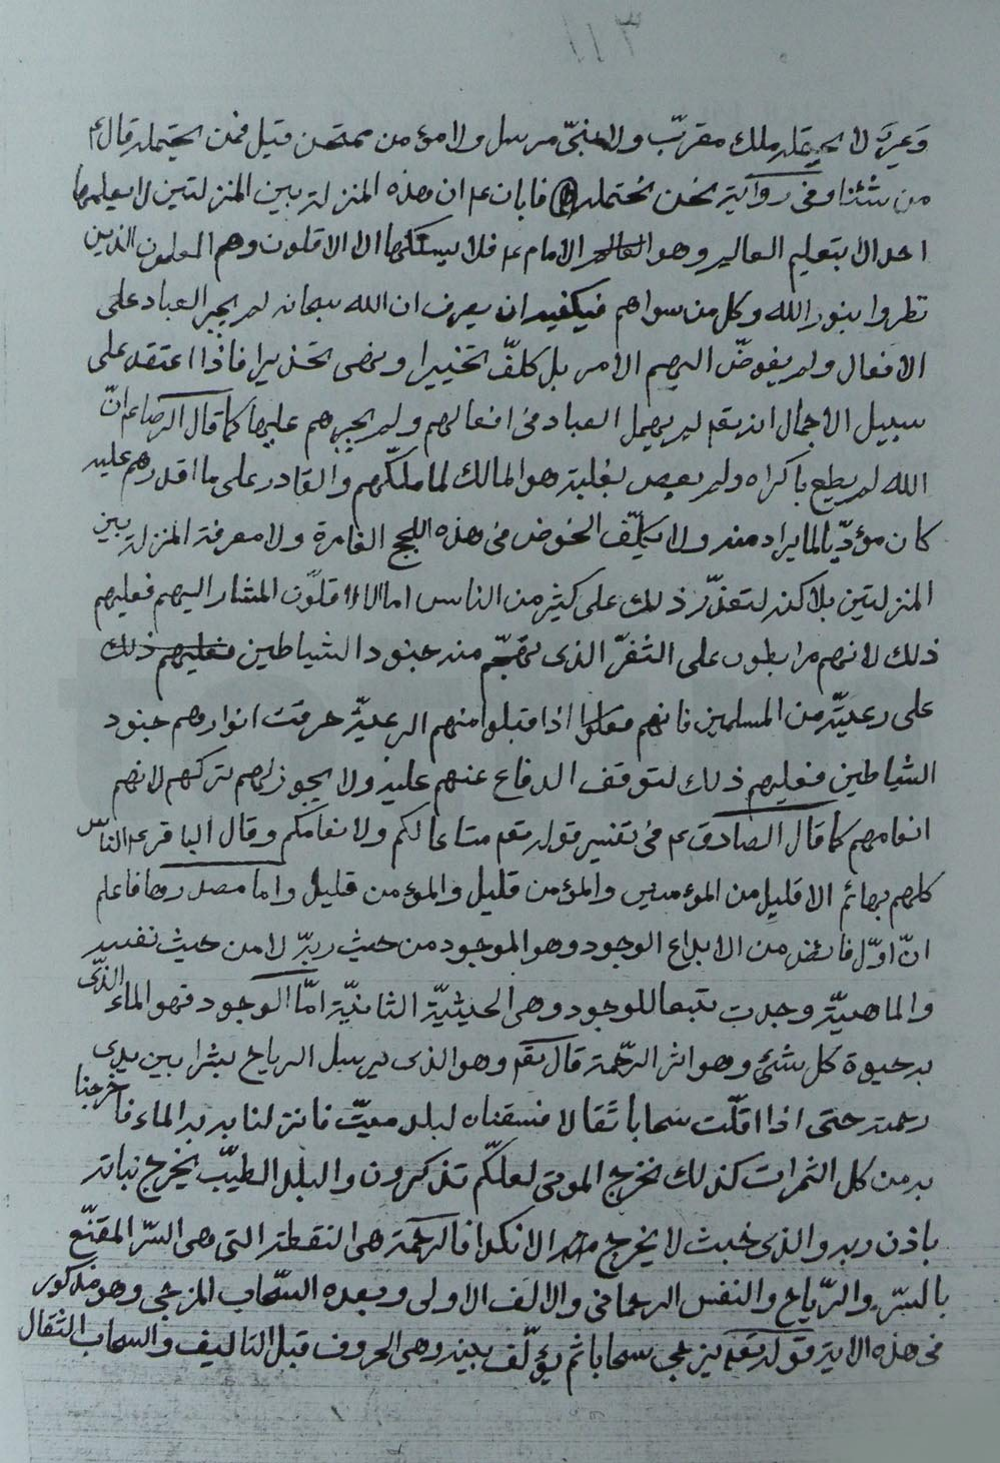 وعر لا يحتمله ملك مقرب ولا نبي مرسل ولا مؤمن ممتحن قيل فمن يحتمله قال ع
من شئنا وفي رواية نحن نحتمله فابان ع ان هذه المنزلة بين المنزلتين لا يعلمها
احد الا بتعليم العالم وهو الامام ع فلا يسلكها الا الاقلون وهم المعلمون الذين
نظروا بنور الله وكل من سواهم فيكفيه ان يعرف ان الله سبحانه لم يجبر العباد على
الافعال ولم يفوّض اليهم الامر بل كلّف تخييرا ونهى تحذيرا فاذا اعتقد على
سبيل الاجمال انه تعه لم يهمل العباد في افعالهم ولم يجبرهم عليها كما قال الرضا ع انّ
الله لم يطع باكراه ولم يعص بغلبة هو المالك لما ملّكهم والقادر على ما اقدرهم عليه
كان مؤدّيا لما يراد منه ولا يكلّف الخوض في هذه اللجج الغامرة ولا معرفة المنزلة بين
المنزلتين بلا كنه لتعذّر ذلك على كثير من الناس اما الاقلّون المشار اليهم فعليهم
ذلك لانهم مرابطون على الثغر الذي تهجم منه جنود الشياطين فعليهم ذلك
على رعيّة من المسلمين فانهم اذا قبلوا منهم الرعيّة حرقت انوارهم جنود
الشياطين فعليهم ذلك لتوقف الدفاع عنهم عليه ولا يجوز لهم تركهم لانهم
انعامهم كما قال الصادق ع في تفسير قوله تعه متاعا لكم ولانعامكم وقال الباقر ع الناس
كلهم بهائم الا قليل من المؤمنين والمؤمن قليل والمؤمن قليل واما مصدرها فاعلم
انّ اوّل فائض من الابداع الوجود وهو الموجود من حيث ربّه لا من حيث نفسه
والماهيّة وجدت تبعا للوجود وهي الحيثيّة الثانيّة امّا الوجود فهو الماء الذّي
به حيوة كل شئ وهو اثر الرّحمة قال تعه وهو الذي يرسل الرياح بشرا بين يدي
رحمته حتى اذا اقلّت سحابا ثقالا فسقناه لبلد ميّت فانزلنا به الماء فاخرجنا
به من كل الثمرات كذلك نخرج الموتى لعلّكم تذكرون والبلد الطيّب يخرج نباته
باذن ربه والذي خبث لا يخرج الا نكدا فالرحمة هي النقطة التي هي السّر المقنّع
بالسّر والرّياح والنفس الرحماني والالف الاولى وبعده السّحاب المزجى وهو مذكور
في هذه الاية قوله تعه يزجي سحابا ثم يؤلّف بينه وهي الحروف قبل التاليف والسحاب الثقال